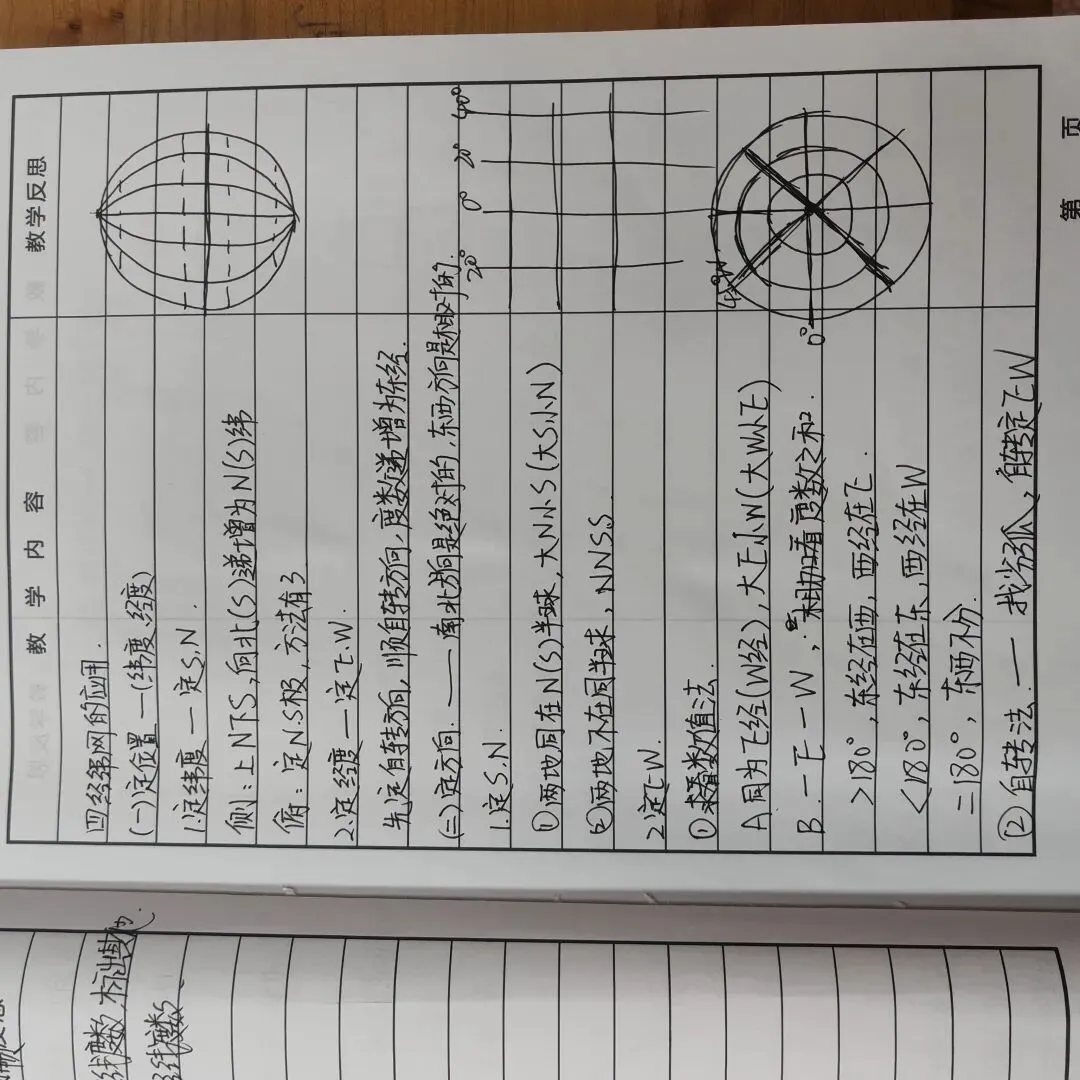 教 学 内 容
教学反思
四经纬网的应用.
(一)定位置 —(纬度、经度)
1.定纬度 — 定S、N.
侧:上N下S,向北(S)递增为N(S)纬
俯:定N.S极,方法有3
2.定经度 — 定E、W.
先定自转方向,顺自转方向,度数递增为东经.
(二)定方向. —— 南北方向是绝对的,东西方向是相对的.
1.定S、N.
①两地同在N(S)半球,大N小S(大S小N)
②两地不在同半球,NNSS.
2.定E、W.
①看数值法.
A 同为E经(W经),大E小W(大W小E)
B. 一E一W,相加看度数之和.
>180°,东经在西,西经在E.
<180°,东经在东,西经在W
=180°,东西不分.
② 自转法.—— 找劣弧,自转定E、W
20°
0°
20°
40°
0°
第
页
线度数,标出其他.